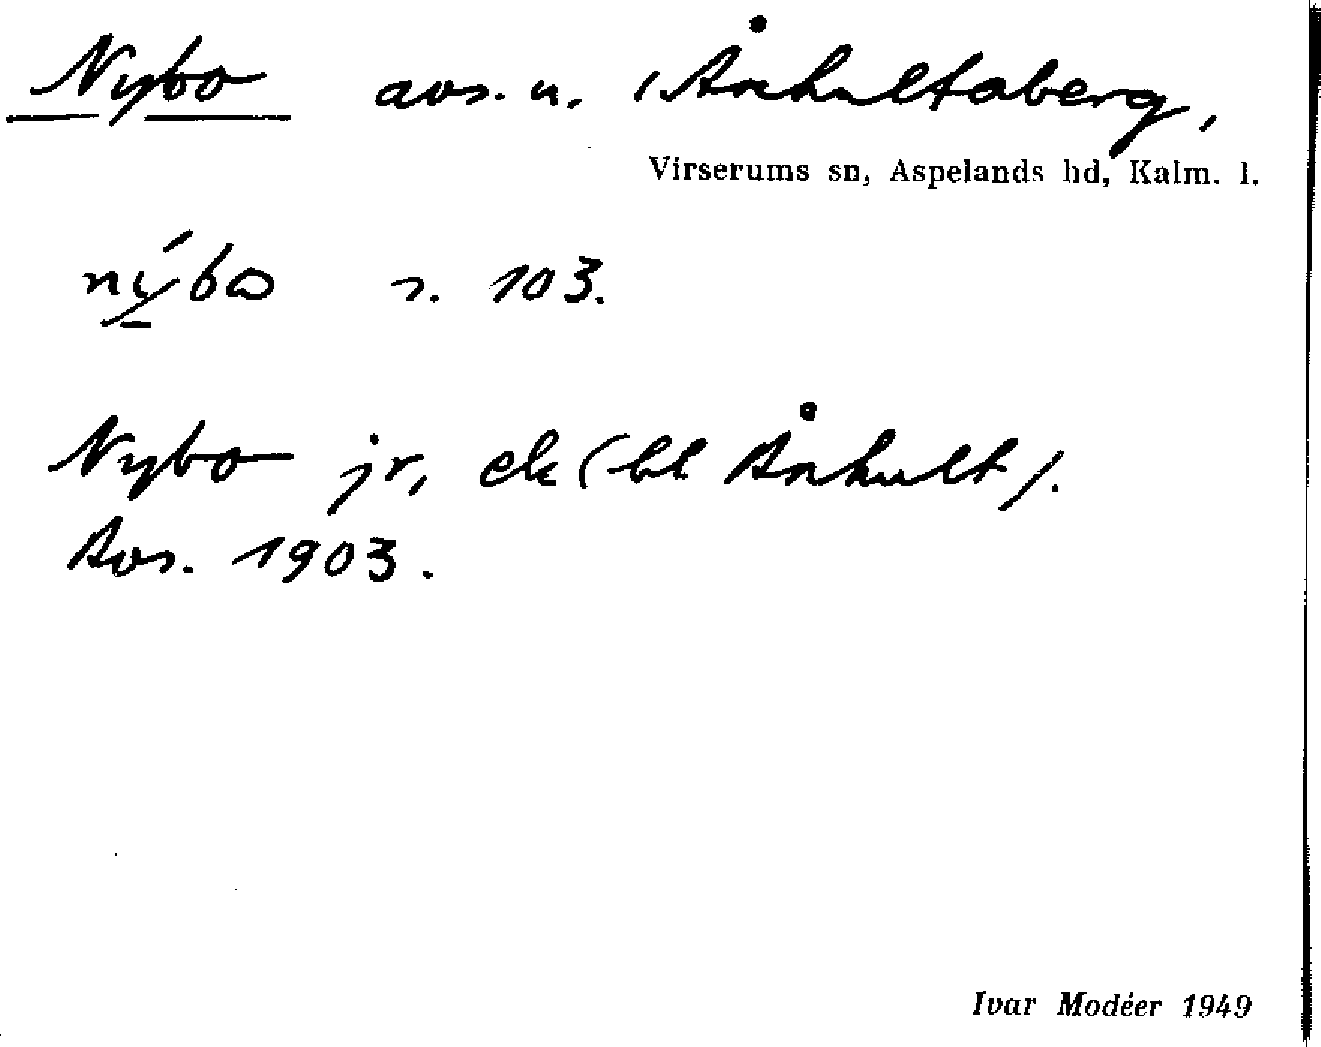 Nybo avs. u. Ånhultaberg,
Virserums sn, Aspelands hd, Kalm. l.
nýbo s. 103.
Nybo jr, ek (bl Ånhult).
Avs. 1903.
Ivar Modéer 1949